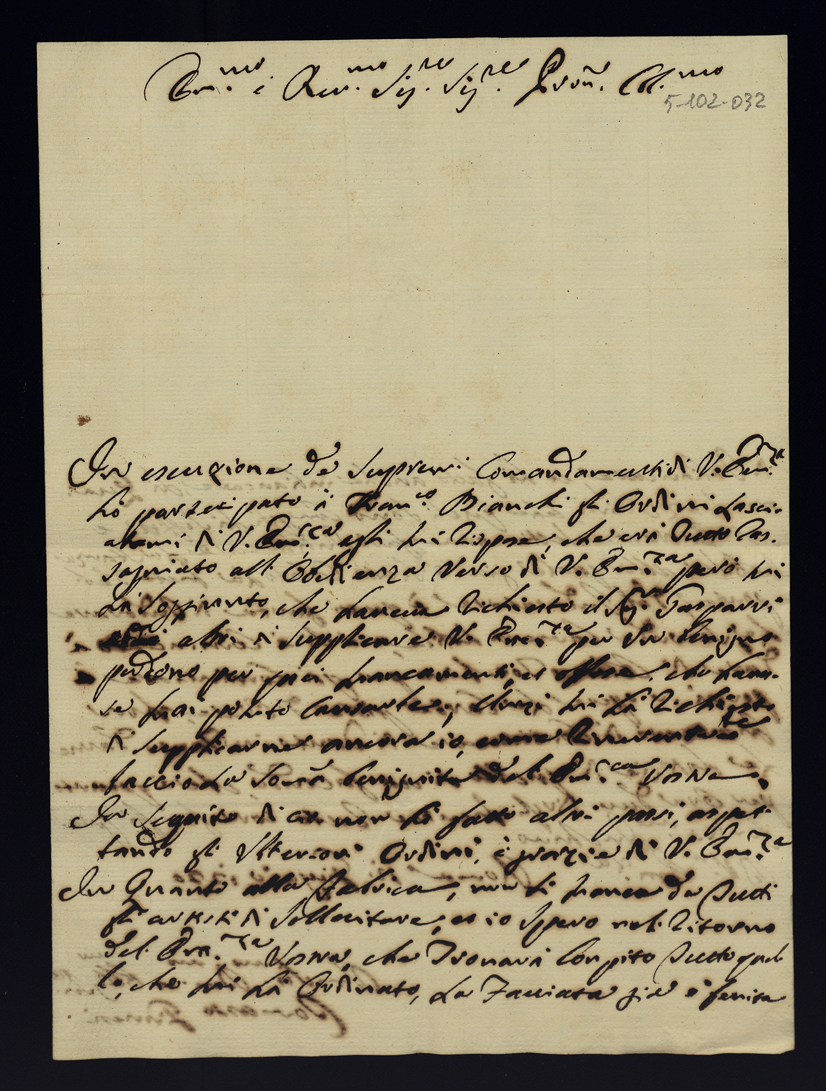 Em.mo e Rev.mo Sig.re Sig.re Pron. Coll.mo
5-102-032
In esecuzione de Supremi Comandamenti di V. Em.za
hò partecipato à Fran.co Bianchi gli Ordini lascia-
atemi di V. Em.za egli mi rispose, che era tutto ras-
segniato all Obedienza verso di V. Em.za però mi
hà soggiunto, che haveva richiesto il Sig. Gasparri
altri di supplicare V. Em.za per un benigno
perdono per i suoi mancamenti et offese, che haves-
se mai potuto causarle, anzi mi hà richiesto
di supplicarne ancora io, come riverente.te
faccio la somã benignità del Em.za Vostra.
In seguito di ciò non hò fatto altri passi, aspet-
tando gli ulteriori Ordini, è grazie di V. Em.za
In Quanto alla fabrica, non si manca da tutti
gli artisti di sollecitare, et io spero nel ritorno
del Em.za Vostra, che Trovarà Compito tutto quel-
lo, che mi hà Ordinato, La Facciata già è fenita